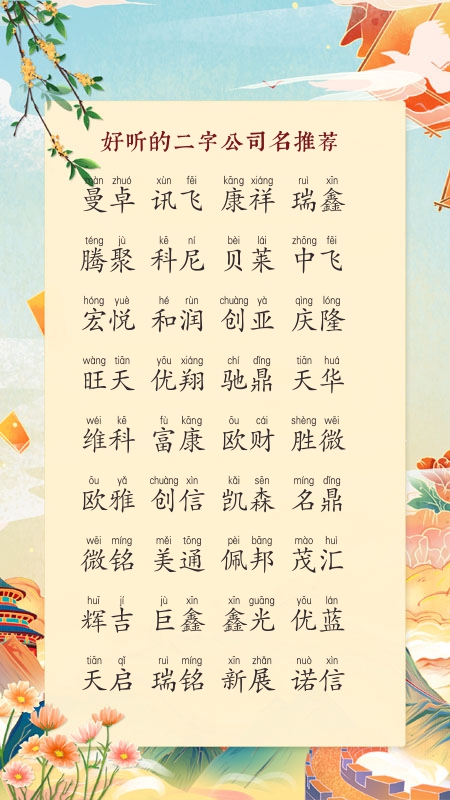 好听的二字公司名推荐
màn zhuó xùn fēi kāng xiáng ruì xīn
曼卓 讯飞 康祥 瑞鑫
téng jù kē ní bèi lái zhōng fēi
腾聚 科尼 贝莱 中飞
hóng yuè hé rùn chuàng yà qìng lóng
宏悦 和润 创亚 庆隆
wàng tiān yōu xiáng chí dǐng tiān huá
旺天 优翔 驰鼎 天华
wéi kē fù kāng ōu cái shèng wēi
维科 富康 欧财 胜微
ōu yǎ chuàng xìn kǎi sēn míng dǐng
欧雅 创信 凯森 名鼎
wēi míng měi tōng pèi bāng mào huì
微铭 美通 佩邦 茂汇
huī jí jù xīn xīn guāng yōu lán
辉吉 巨鑫 鑫光 优蓝
tiān qǐ ruì míng xīn zhǎn nuò xìn
天启 瑞铭 新展 诺信